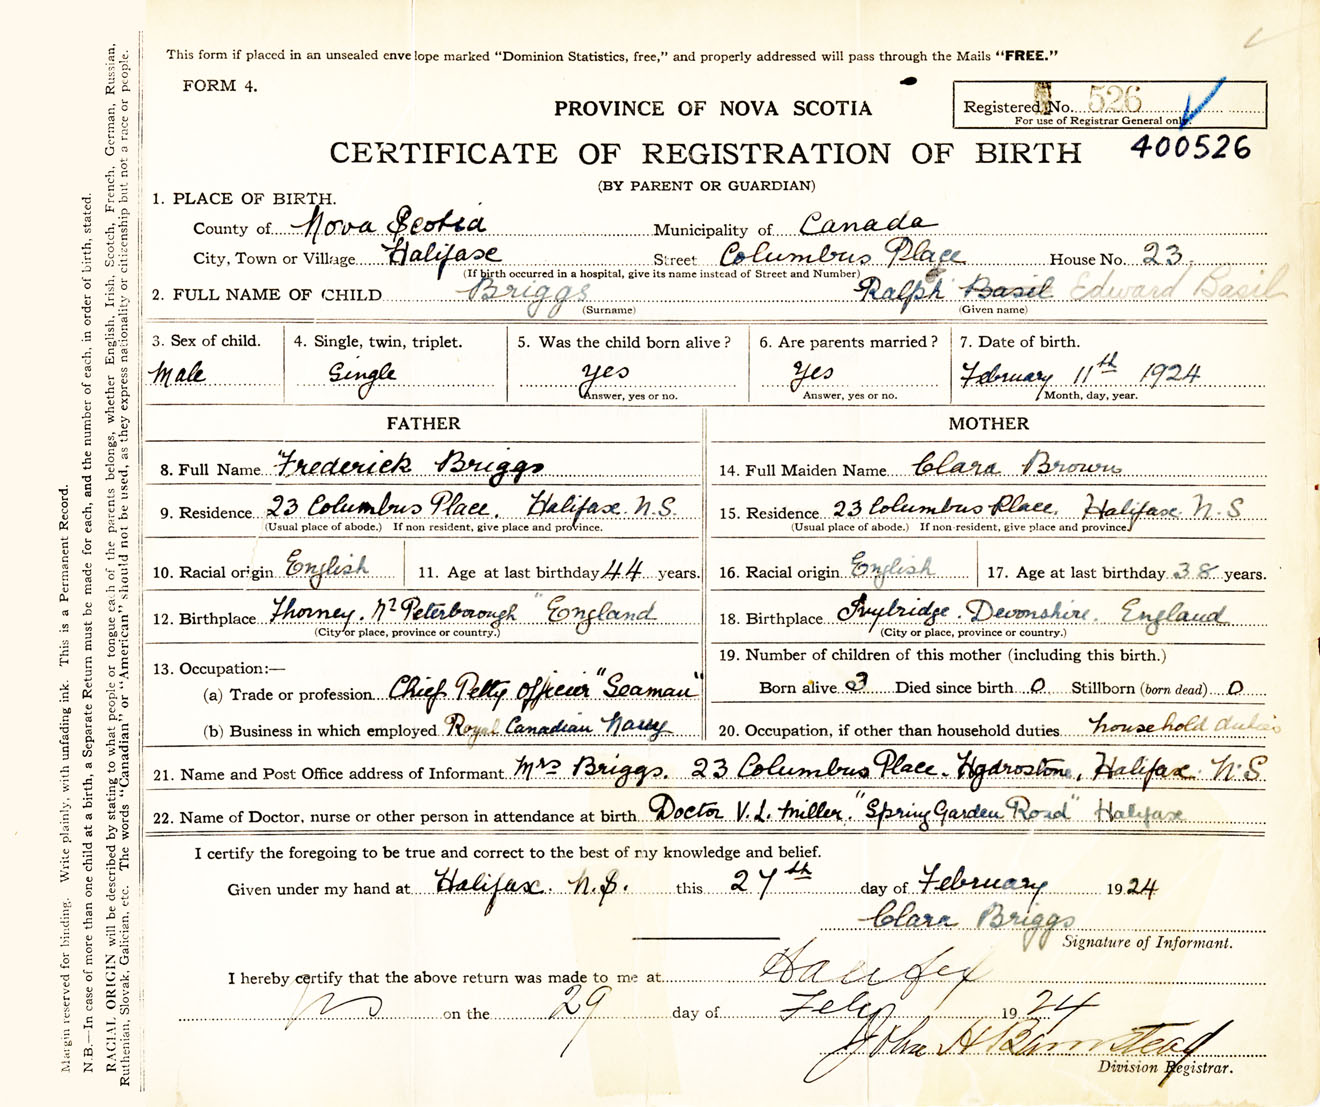 This form if placed in an unsealed envelope marked "Dominion Statistics, free," and properly addressed will pass through the Mails "FREE."
FORM 4.
Registered No. 526
For use of Registrar General only.
PROVINCE OF NOVA SCOTIA
400526
CERTIFICATE OF REGISTRATION OF BIRTH
(BY PARENT OR GUARDIAN)
1. PLACE OF BIRTH.
County of Nova Scotia Municipality of Canada
City, Town or Village Halifax Street Columbus Place House No. 23.
(If birth occurred in a hospital, give its name instead of Street and Number)
2. FULL NAME OF CHILD Briggs Ralph Basil Edward Basil
(Surname) (Given name)
3. Sex of child. 4. Single, twin, triplet. 5. Was the child born alive? 6. Are parents married? 7. Date of birth.
Male Single yes Yes February 11th 1924
Answer, yes or no. Answer, yes or no. Month, day, year.
FATHER
8. Full Name Frederick Briggs
9. Residence 23 Columbus Place. Halifax. N.S.
(Usual place of abode.) If non resident, give place and province.
10. Racial origin English 11. Age at last birthday 44 years.
12. Birthplace Thorney. Nr Peterborough " England
(City or place, province or country.)
13. Occupation:—
(a) Trade or profession Chief Petty officier "Seaman"
(b) Business in which employed Royal Canadian Navy
MOTHER
14. Full Maiden Name Clara Brown
15. Residence 23 Columbus Place. Halifax. N.S
(Usual place of abode.) If non-resident, give place and province.
16. Racial origin English 17. Age at last birthday 38 years.
18. Birthplace Ivybridge. Devonshire. England
(City or place, province or country.)
19. Number of children of this mother (including this birth.)
Born alive 3 Died since birth 0 Stillborn (born dead) 0
20. Occupation, if other than household duties. household duties
21. Name and Post Office address of Informant Mrs Briggs. 23 Columbus Place. Hydrostone, Halifax. N.S
22. Name of Doctor, nurse or other person in attendance at birth Doctor V. L. Miller. "Spring Garden Road" Halifax
I certify the foregoing to be true and correct to the best of my knowledge and belief.
Given under my hand at Halifax. N.S. this 27th day of February 1924
Clara Briggs
Signature of Informant.
I hereby certify that the above return was made to me at Halifax
NS on the 29 day of Feby 1924
John H Barnstead
Division Registrar.
Margin reserved for binding. Write plainly, with unfading ink. This is a Permanent Record.
N.B.—In case of more than one child at a birth, a Separate Return must be made for each, and the number of each, in order of birth, stated.
RACIAL ORIGIN will be described by stating to what people or tongue each of the parents belongs, whether English, Irish, Scotch, French, German, Russian,
Ruthenian, Slovak, Galician, etc. The words "Canadian" or "American" should not be used, as they express nationality or citizenship but not a race or people.